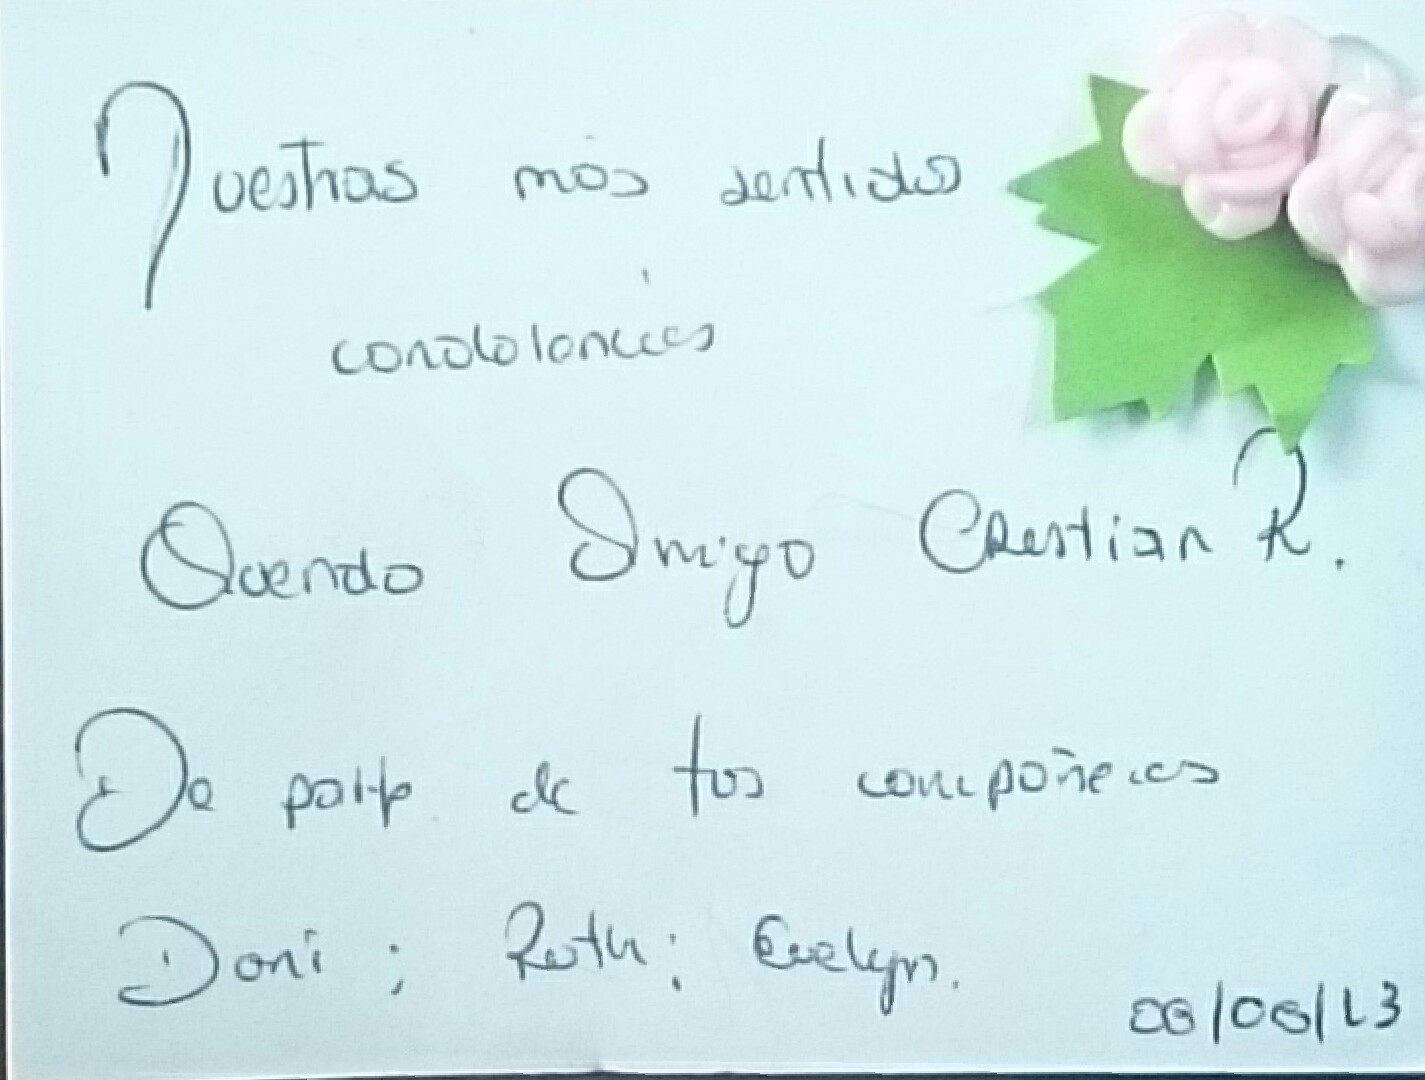 Nuestras más sentidas
condolencias
Querido Amigo Cristian R.
De parte de tus compañeros
Dani ; Ruth ; Evelyn.
06/06/13